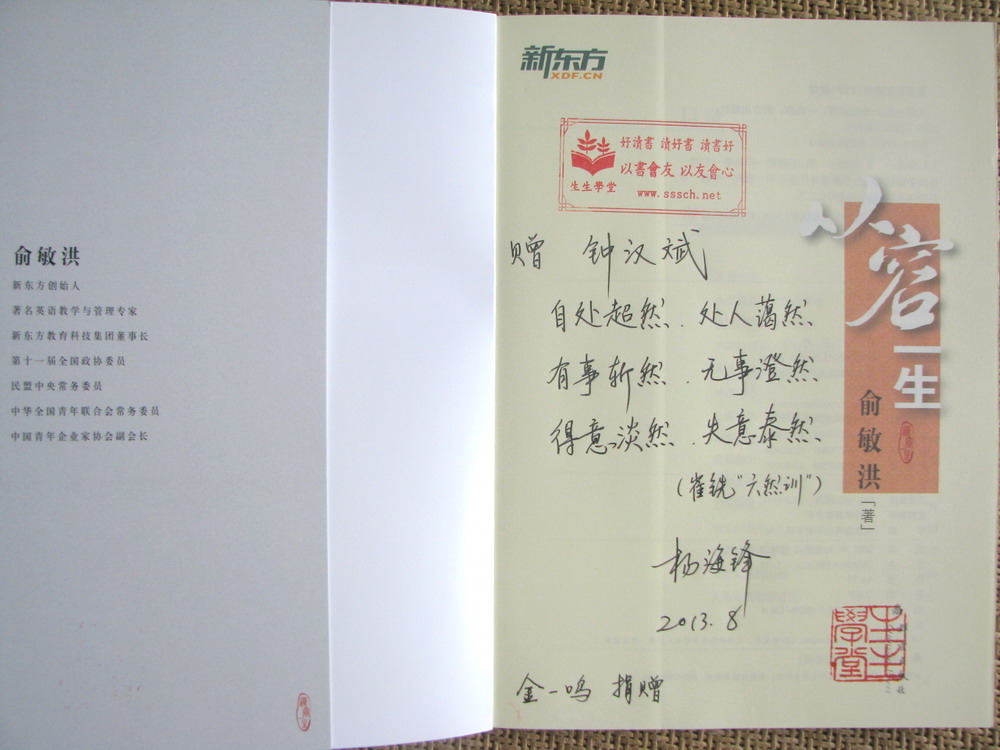 俞敏洪
新东方创始人
著名英语教学与管理专家
新东方教育科技集团董事长
第十一届全国政协委员
民盟中央常务委员
中华全国青年联合会常务委员
中国青年企业家协会副会长
新东方
XDF.CN
好讀書 讀好書 讀書好
以書會友 以友會心
生生學堂
www.sssch.net
赠 钟汉斌
自处超然、处人蔼然、
有事斩然、无事澄然、
得意淡然、失意泰然、
（崔铣“六然训”）
杨海锋
2013.8
金一鸣 捐赠
从容
一生
俞敏洪
「著」
生生
學堂